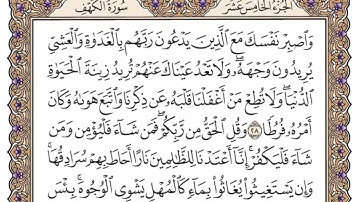 الجزء الخامس عشر سورة الكهف
وَٱصۡبِرۡ نَفۡسَكَ مَعَ ٱلَّذِينَ يَدۡعُونَ رَبَّهُم بِٱلۡغَدَوٰةِ وَٱلۡعَشِيِّ
يُرِيدُونَ وَجۡهَهُۥۖ وَلَا تَعۡدُ عَيۡنَاكَ عَنۡهُمۡ تُرِيدُ زِينَةَ ٱلۡحَيَوٰةِ
ٱلدُّنۡيَاۖ وَلَا تُطِعۡ مَنۡ أَغۡفَلۡنَا قَلۡبَهُۥ عَن ذِكۡرِنَا وَٱتَّبَعَ هَوَىٰهُ وَكَانَ
أَمۡرُهُۥ فُرُطٗا ٢٨ وَقُلِ ٱلۡحَقُّ مِن رَّبِّكُمۡۖ فَمَن شَآءَ فَلۡيُؤۡمِن وَمَن
شَآءَ فَلۡيَكۡفُرۡۚ إِنَّآ أَعۡتَدۡنَا لِلظَّٰلِمِينَ نَارًا أَحَاطَ بِهِمۡ سُرَادِقُهَاۚ
وَإِن يَسۡتَغِيثُواْ يُغَاثُواْ بِمَآءٖ كَٱلۡمُهۡلِ يَشۡوِي ٱلۡوُجُوهَۚ بِئۡسَ